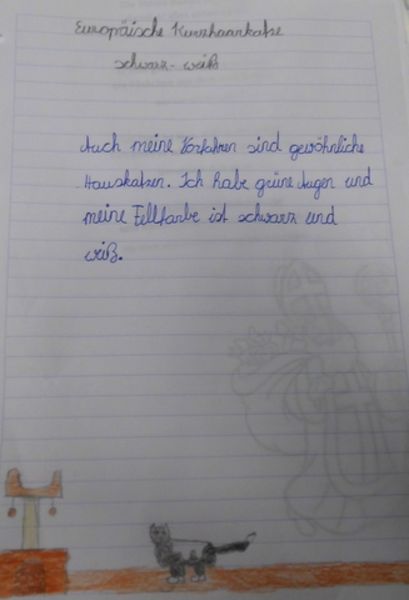 Europäische Kurzhaarkatze
schwarz-weiß
Auch meine Vorfahren sind gewöhnliche
Hauskatzen. Ich habe grüne Augen und
meine Fellfarbe ist schwarz und
weiß.